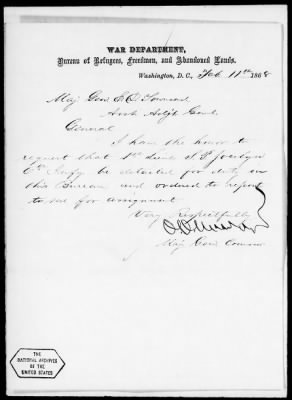 WAR DEPARTMENT,
Bureau of Refugees, Freedmen, and Abandoned Lands.
Washington, D. C., Feb 11th 1868
Maj Gen E. D. Townsend
Asst Adjt Genl.
General
I have the honor to
request that 1st Lieut S. P. Jocelyn
6th Infy be detailed for duty in
this Bureau and ordered to report
to me for assignment
Very Respectfully
O O Howard
Maj Genl Commr
THE
NATIONAL ARCHIVES
OF THE
UNITED STATES